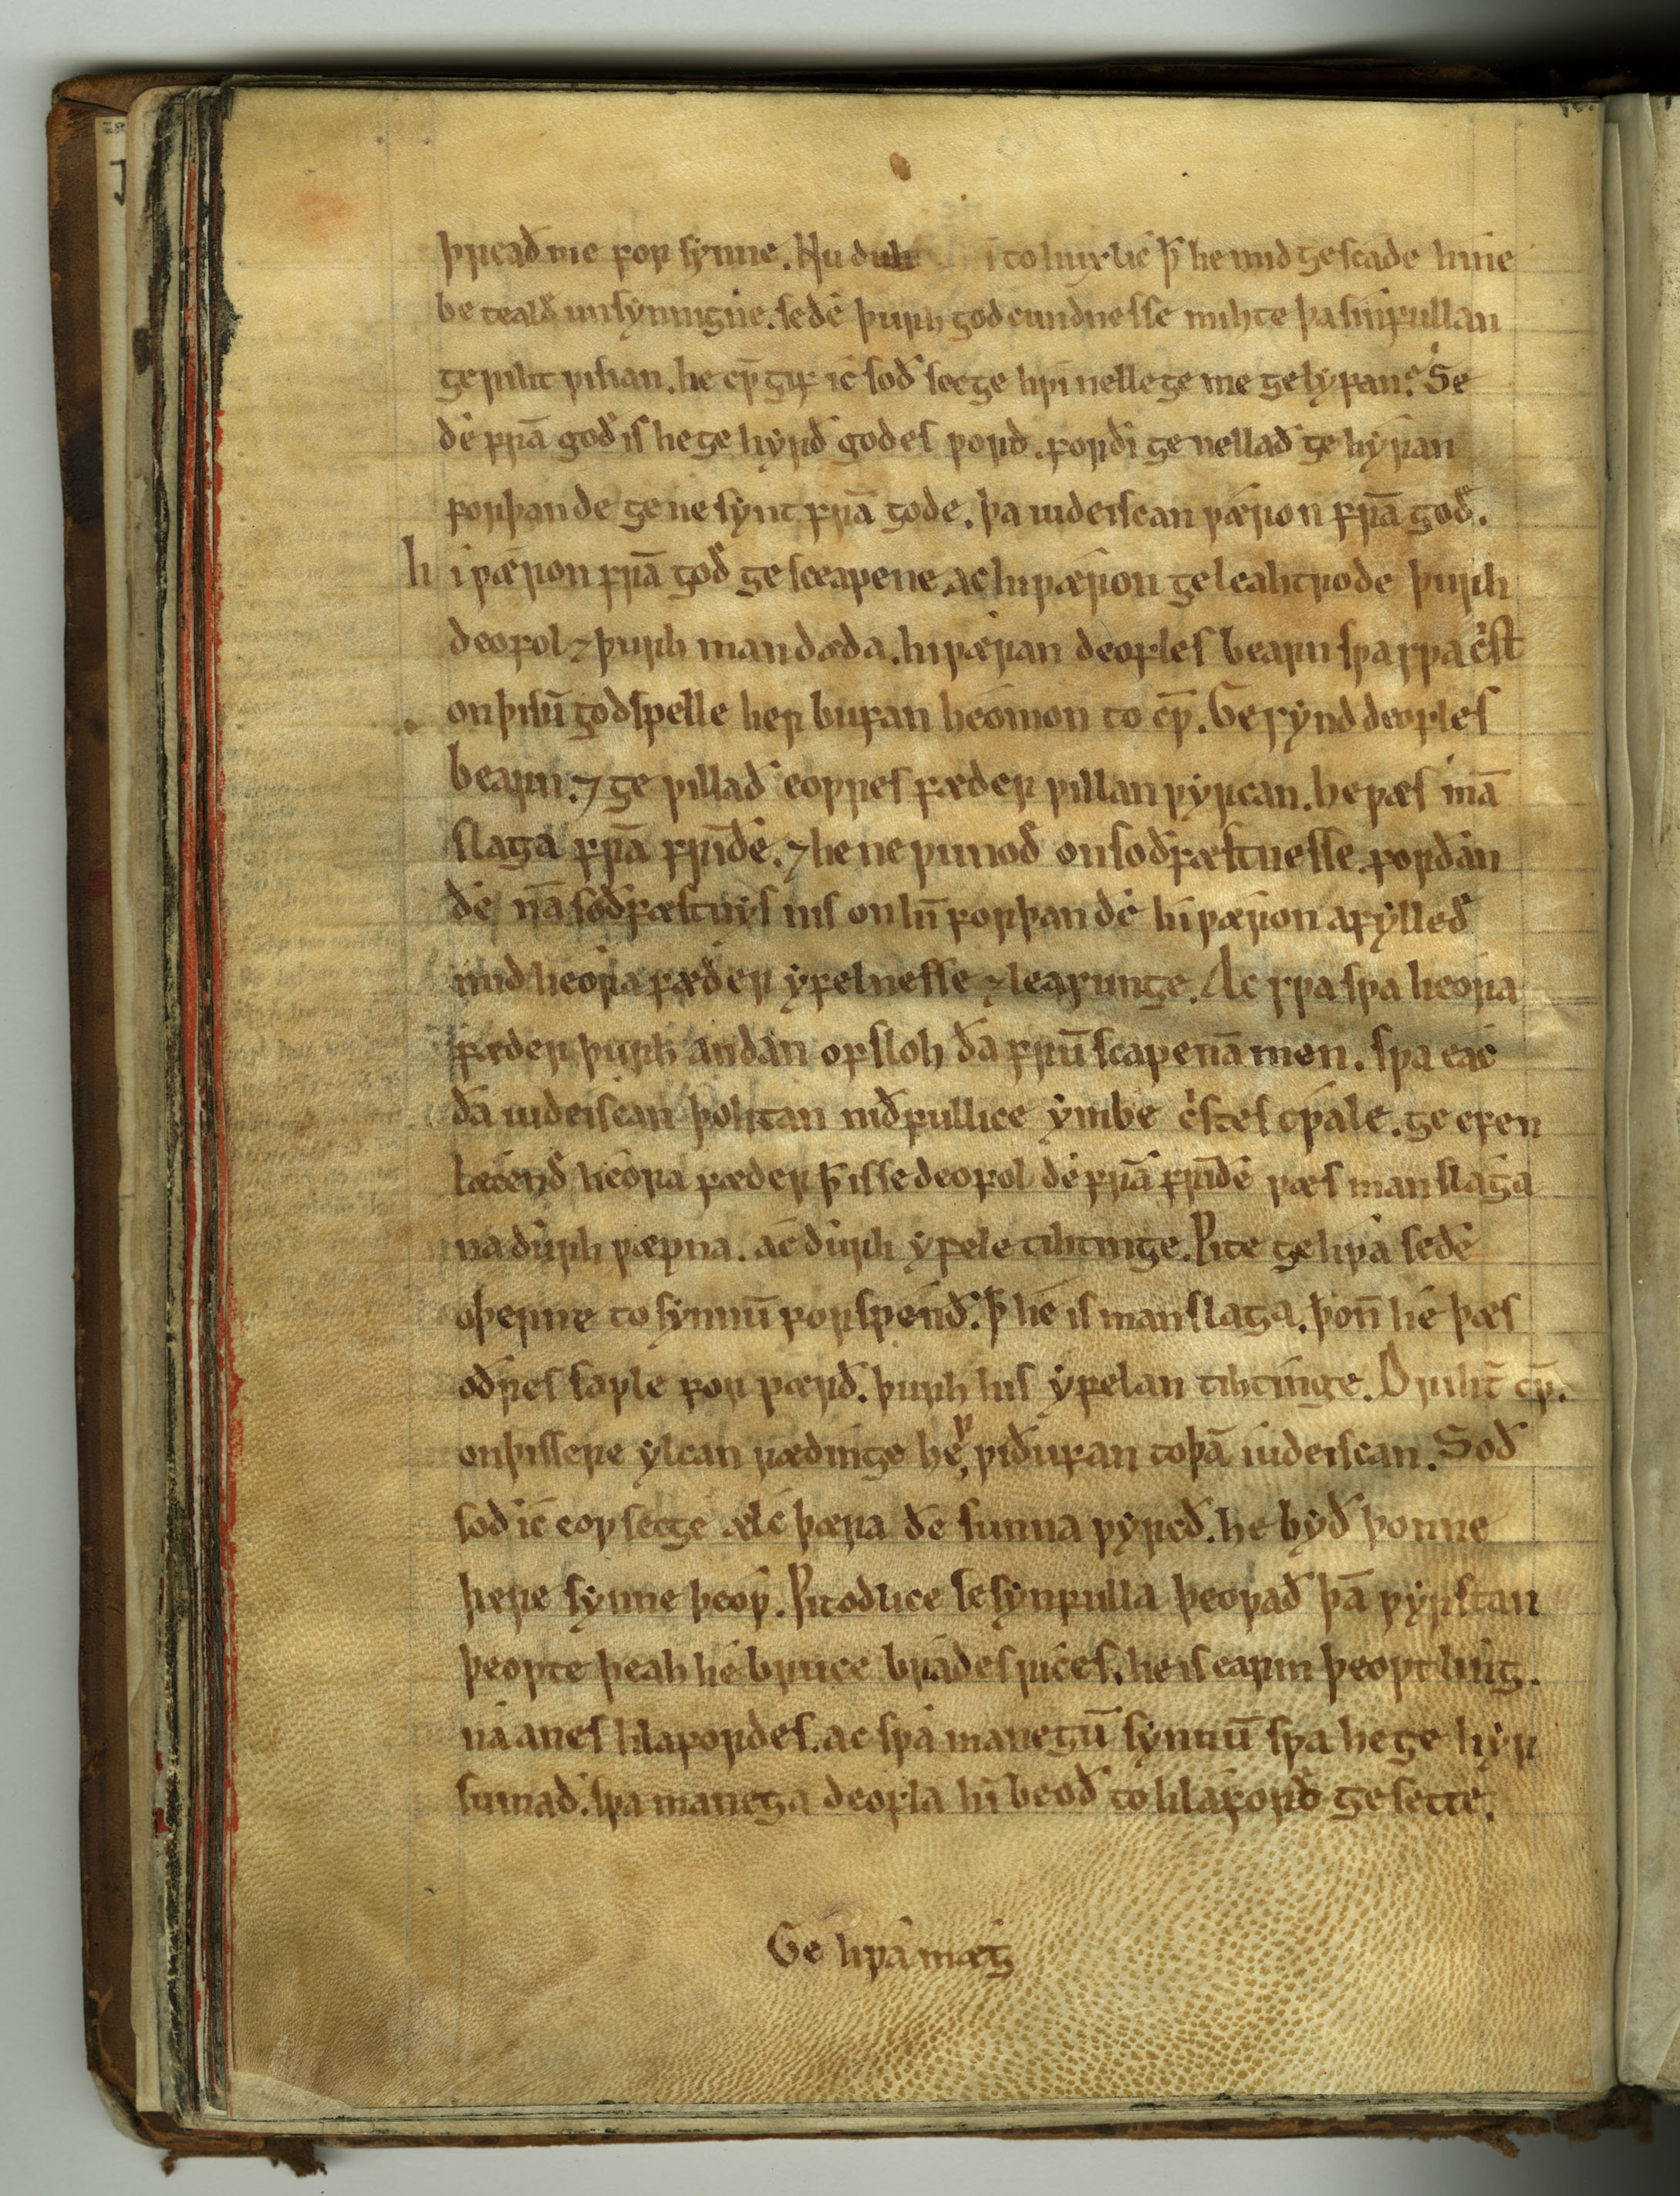 þreað me for synne. Nu duh him to huxlic ꝥ he mid gescade hine
be tealð unsynnigne. seðe þurh godcundnesse mihte þa sinfullan
gerihtƿisian. he cƿ̄ gif ic soð secge hƿi nelle ge me gelyfan. Se
ðe frā god is he gehyrð godes ƿord. forði ge nellað gehyran
forþan ðe ge ne synt frā gode. þa iudeiscan ƿæron frā god.
hi ƿæron frā god gesceapene. ac hi ƿæron geleahtrode þurh
deofol ⁊ þurh mandæda. hi ƿæran deofles bearn sƿa sƿa c̄st
on þisū godspelle her bufan heomon to cƿ̄. Ge synd deofles
bearn. ⁊ ge ƿillað eoƿres fæder ƿillan ƿyrcan. he ƿæs mā
slaga frā frūðe. ⁊ he ne ƿunoð on soðfæstnesse. forðan
ðe nā soðfæstnys nis on hī forþan ðe hi ƿæron afylleð
mid heora fæder yfelnesse ⁊ leasunge. Ac sƿa sƿa heora
fæder þurh andan ofsloh ða frūscapenā men. sƿa eac
ða iudeiscan þohtan niðfullice ymbe c̄stes cƿale. ge efen
læcend heora fæder ꝥ is se deofol ðe frā frūðe ƿæs manslaga
na ðurh ƿæpna. ac ðurh yfele tihtinge. Ƿite gehƿa seðe
oþerne to synnū forspenð. ꝥ he is manslaga. þoñ he þæs
oðres saƿle forƿærð. þurh his yfelan tihtinge. Drihт̄ cƿ̄.
on þissere ylcan rædinge her ƿiðufan to þā iudeiscan. Soð
soð ic eoƿ secge ælc þæra ðe sunna ƿyrcð. he byð þonne
þære synne þeoƿ. Ƿitodlice se synfulla þeoƿað þā ƿyrstan
þeoƿte þeah he bruce brades rices. he is earm þeoƿtling.
na anes hlafordes. ac sƿa manegū synnū sƿa he gehyr
sumað. sƿa manega deofla hī beoð to hlaford gesette.
Ge hƿa mæg